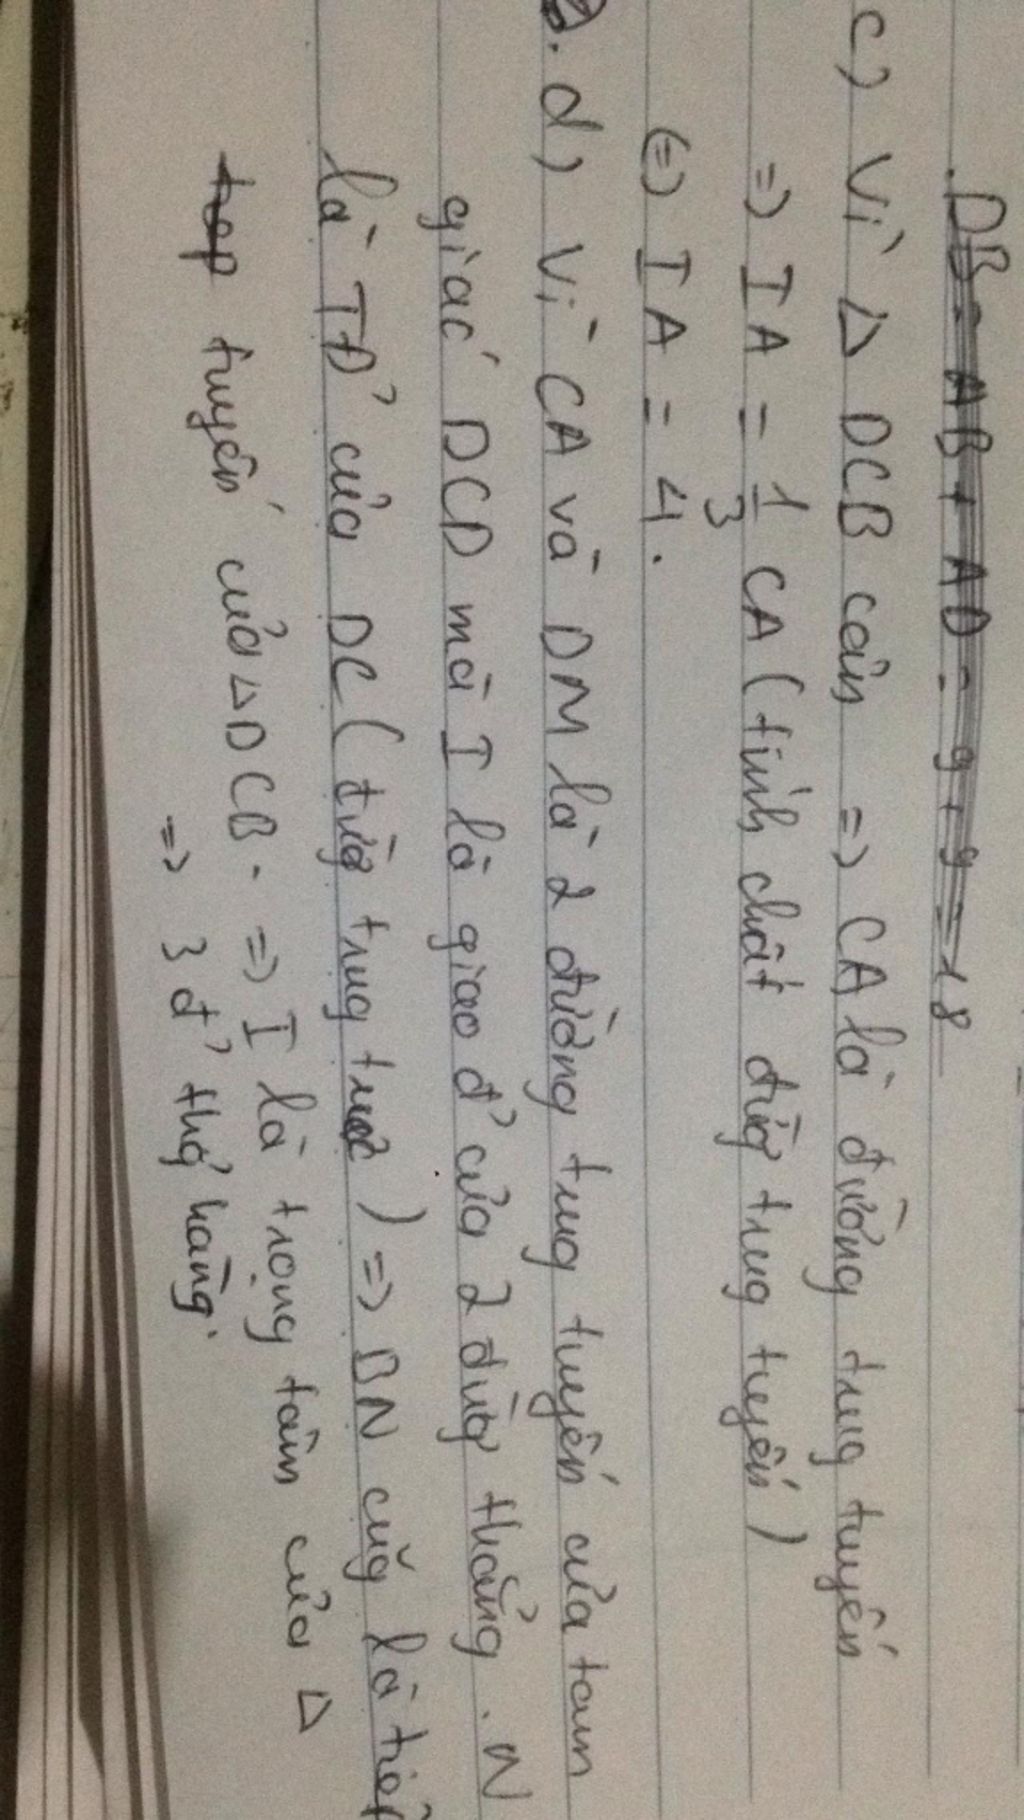 DB = AB + AD = 9 + 9 = 18
c) Vì Δ DCB cân => CA là đường trug tuyến
=> IA = 1/3 CA (tính chất đườg trug tuyến)
(=) IA = 4.
d) Vì CA và DM là 2 đường trug tuyến của tam
giác DCD mà I là giao đ' của 2 đườg thẳng. N
là TĐ' của DC (đườg trug trực) => BN cũg là
tuyến của Δ DCB. => I là trọng tâm của Δ
=> 3 đ' thẳ hàng.